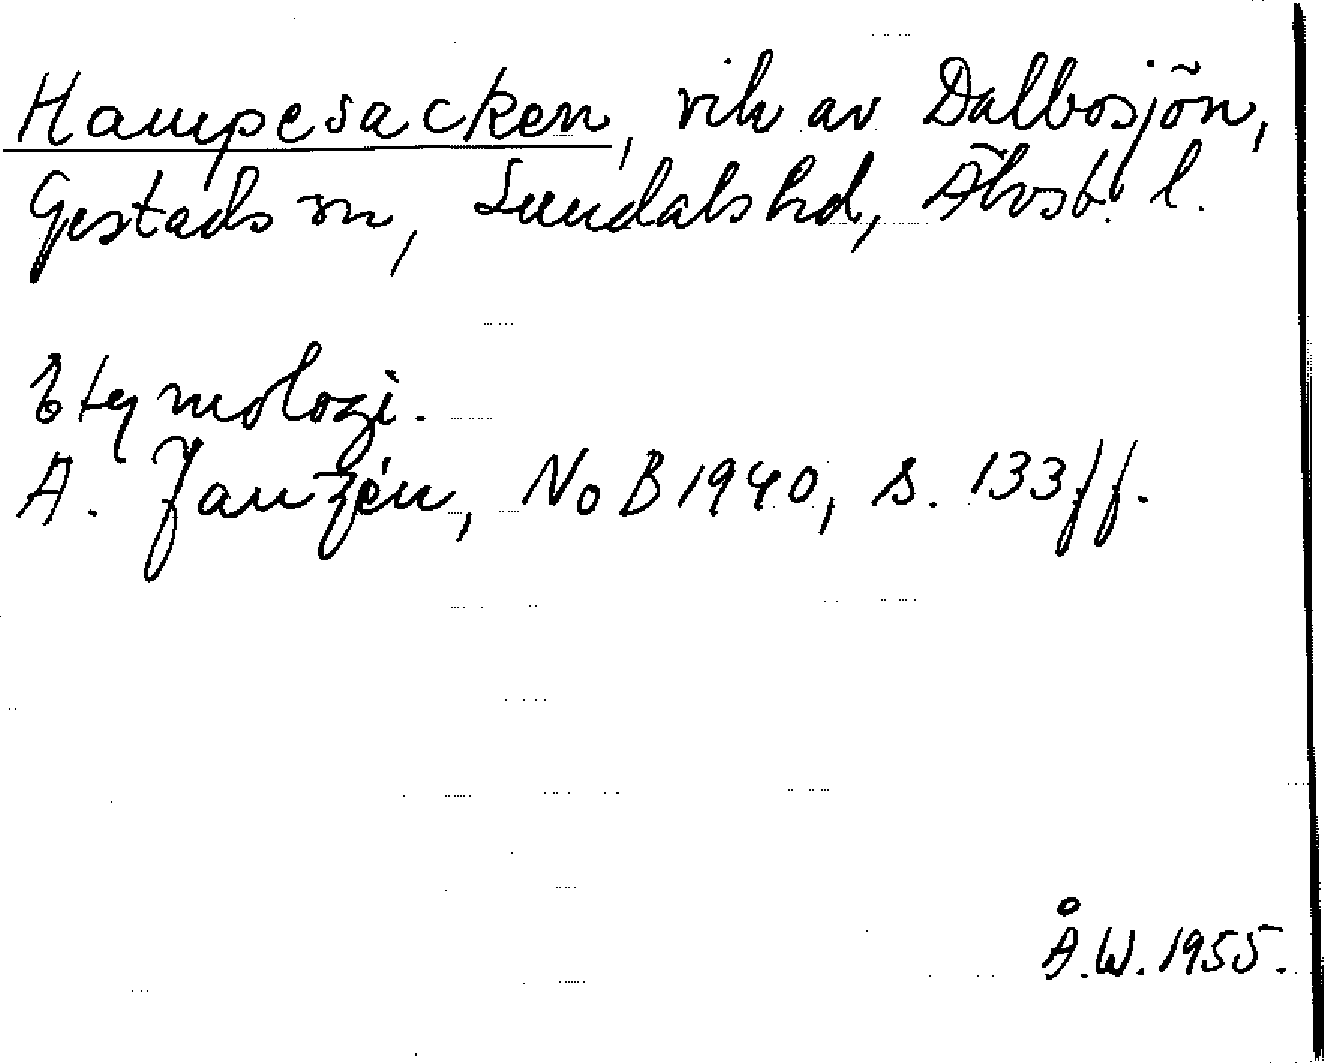 Hampesacken, vik av Dalbosjön,
Gestads sn, Sundals hd, Älvsb. l.
Etymologi.
A. Janzén, NoB 1940, s. 133 ff.
Å.W. 1955.